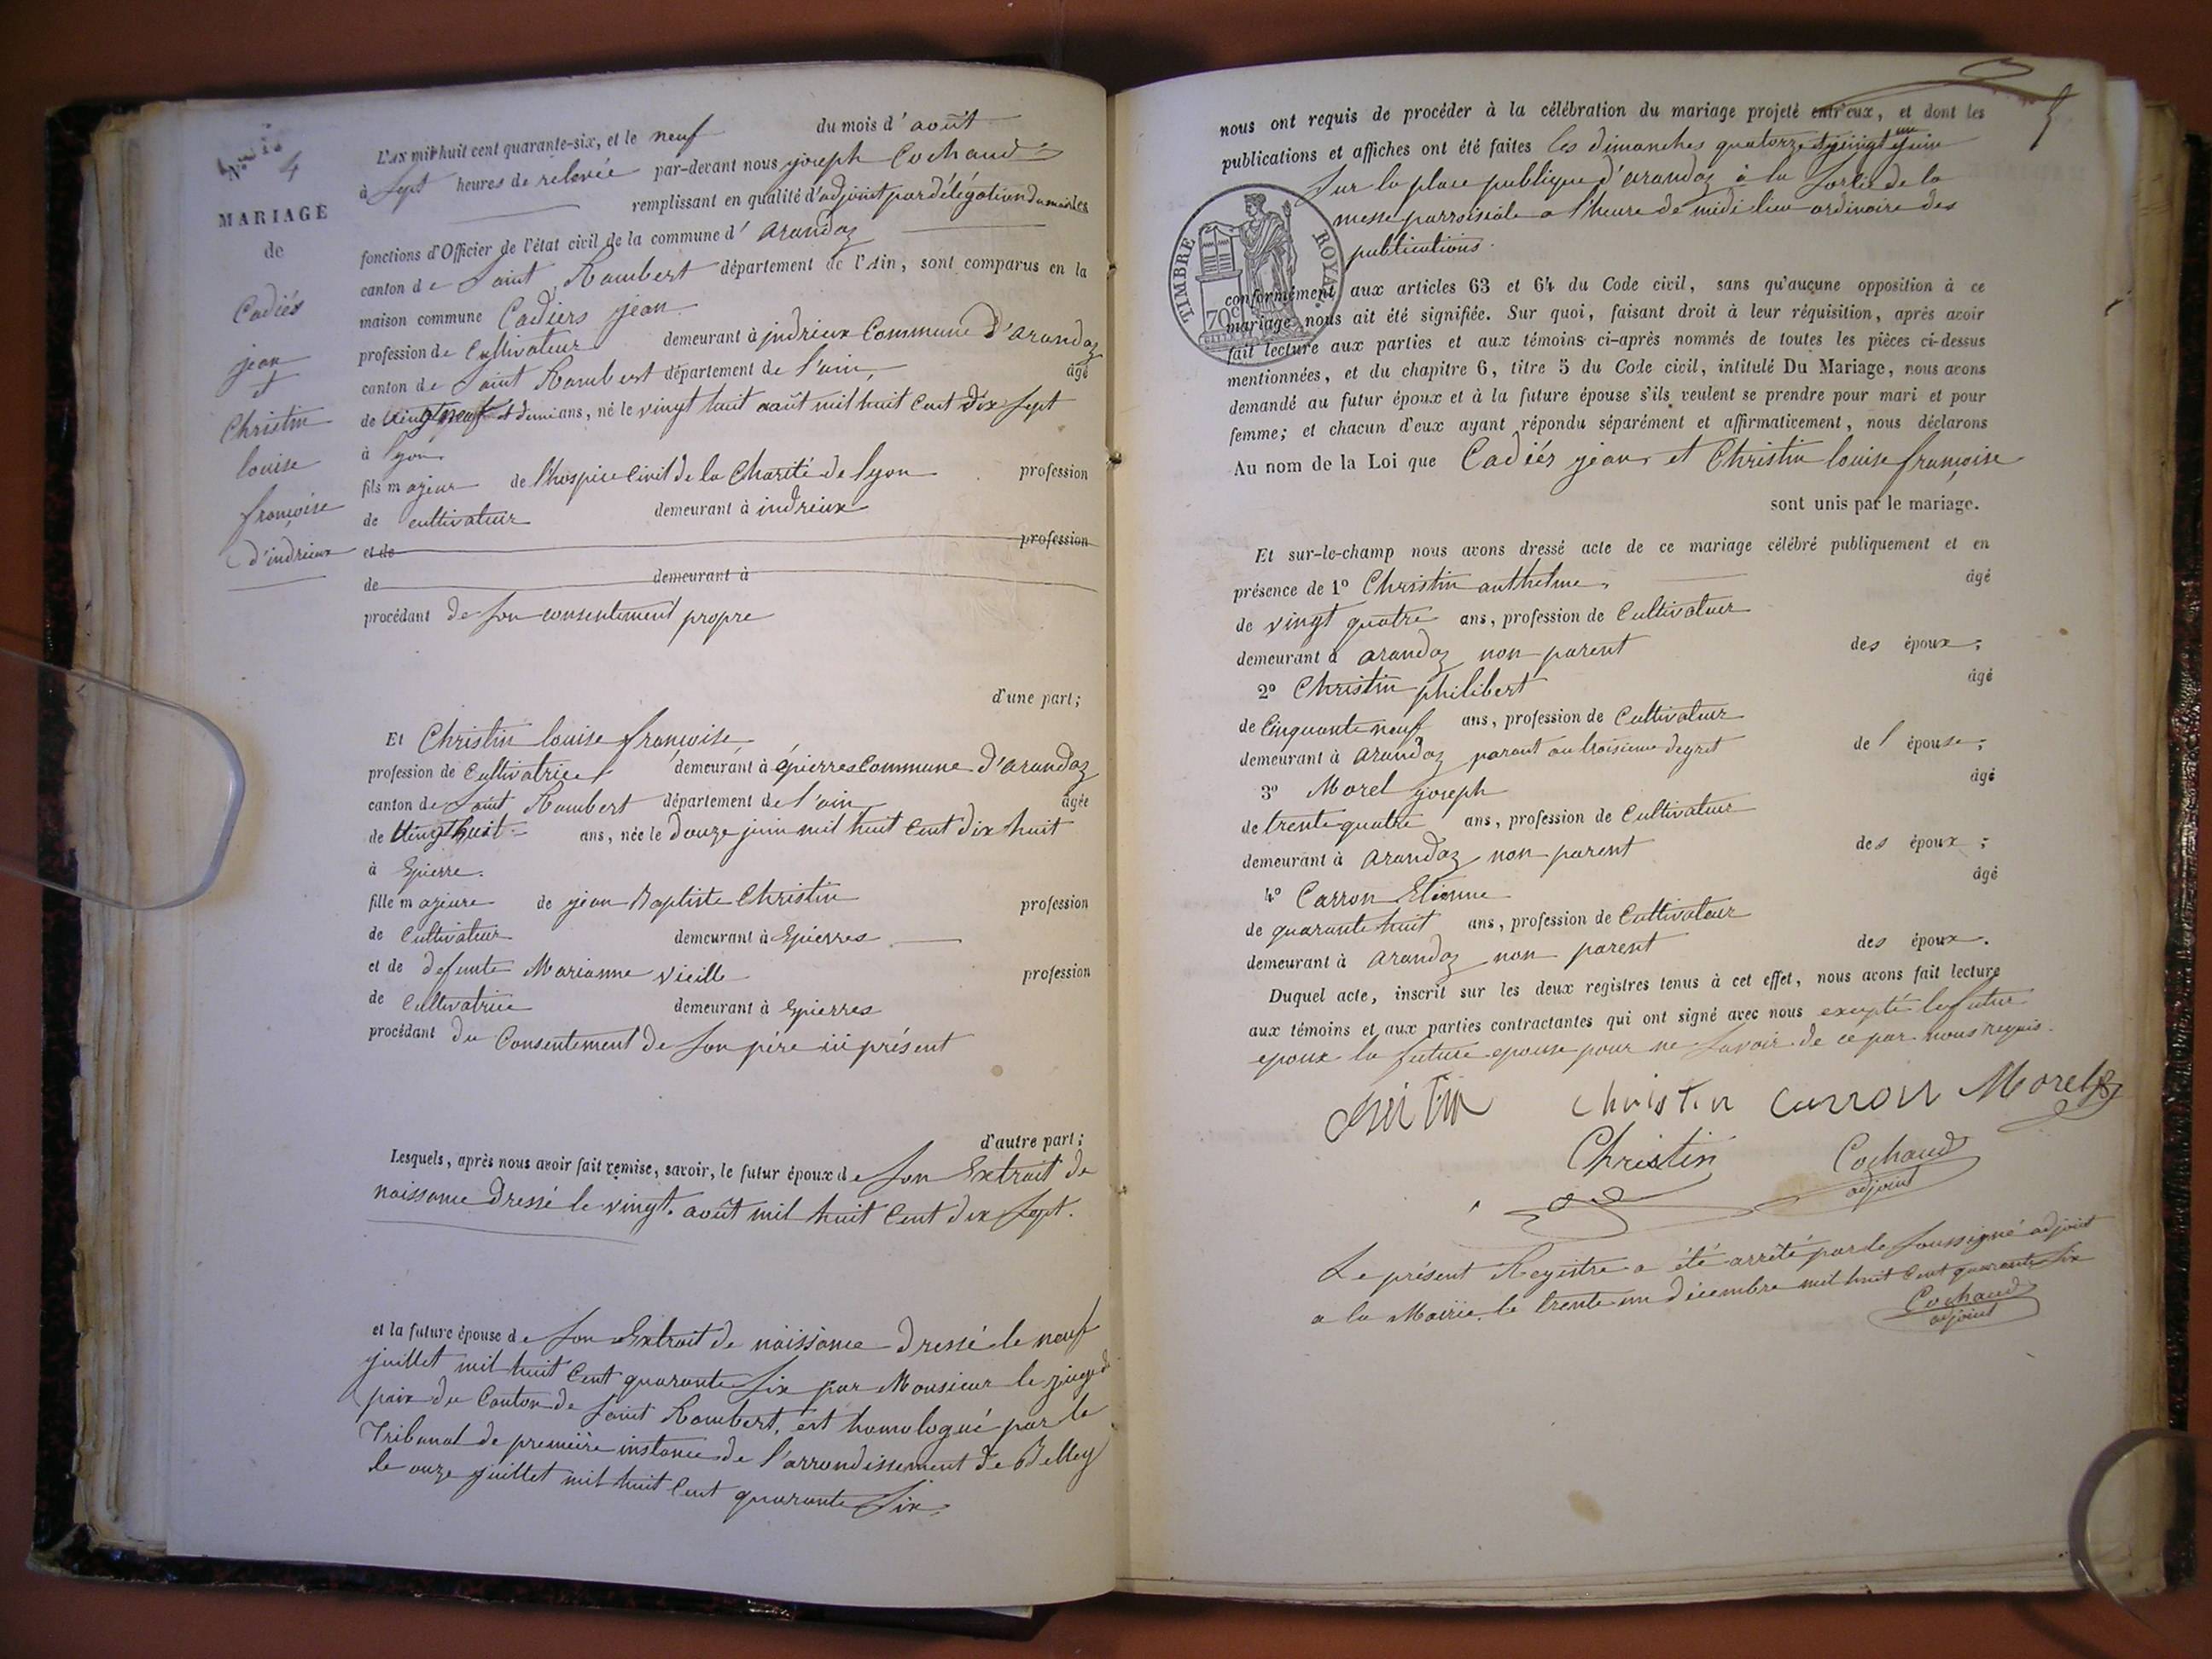 N.º 4
MARIAGE
de
Cadiés
jean
et
Christin
louise
françoise
d'indrieux
L'AN mil huit cent quarante-six, et le neuf du mois d'août
à sept heures de relevée par-devant nous joseph Cochaud
remplissant en qualité d'adjoint par délégation du maire les
fonctions d'Officier de l'état civil de la commune d' arandaz
canton de Saint Rambert département de l'Ain, sont comparus en la
maison commune Cadiers jean
profession de Cultivateur demeurant à indrieux Commune d'arandaz
canton de Saint Rambert département de l'ain, âgé
de vingt neuf et demi ans, né le vingt huit août mil huit cent dix sept
à lyon
fils majeur de l'hospice Civil de la Charité de lyon profession
de cultivateur demeurant à indrieux
et de profession
de demeurant à
procédant de son consentement propre
d'une part;
Et Christin louise françoise
profession de Cultivatrice demeurant à épierres Commune d'arandaz
canton de Saint Rambert département de l'ain âgée
de vingt huit ans, née le douze juin mil huit cent dix huit
à Epierre.
fille majeure de jean Baptiste Christin profession
de Cultivateur demeurant à Epierres
et de defunte Marianne vieille profession
de Cultivatrice demeurant à Epierres
procédant du Consentement de son père ici présent
d'autre part;
Lesquels, après nous avoir fait remise, savoir, le futur époux de son Extrait de
naissance dressé le vingt. août mil huit Cent dix sept.
et la future épouse de son Extrait de naissance dressé le neuf
juillet mil huit Cent quarante six par Monsieur le juge de
paix du Canton de Saint Rambert, est homologué par le
Tribunal de première instance de l'arrondissement de Belley
le onze juillet mil huit Cent quarante six.
nous ont requis de procéder à la célébration du mariage projeté entr'eux, et dont les
publications et affiches ont été faites les dimanches quatorze et vingt un juin
Sur la place publique d'arandaz à la Sortie de la
messe parroissiale a l'heure de midi lieu ordinaire des
publications.
TIMBRE ROYAL
70c
conformément aux articles 63 et 64 du Code civil, sans qu'aucune opposition à ce
mariage nous ait été signifiée. Sur quoi, faisant droit à leur réquisition, après avoir
fait lecture aux parties et aux témoins ci-après nommés de toutes les pièces ci-dessus
mentionnées, et du chapitre 6, titre 5 du Code civil, intitulé Du Mariage, nous avons
demandé au futur époux et à la future épouse s'ils veulent se prendre pour mari et pour
femme; et chacun d'eux ayant répondu séparément et affirmativement, nous déclarons
Au nom de la Loi que Cadiés jean et Christin louise françoise
sont unis par le mariage.
Et sur-le-champ nous avons dressé acte de ce mariage célébré publiquement et en
présence de 1º Christin anthelme, âgé
de vingt quatre ans, profession de Cultivateur
demeurant à arandaz non parent des époux;
2º Christin philibert âgé
de Cinquante neuf ans, profession de Cultivateur
demeurant à arandaz parant au troisieme degret de l'épouse;
3º Morel joseph âgé
de trente quatre ans, profession de Cultivateur
demeurant à arandaz non parent des époux;
4º Carron Etienne âgé
de quarante huit ans, profession de Cultivateur
demeurant à arandaz non parent des époux.
Duquel acte, inscrit sur les deux registres tenus à cet effet, nous avons fait lecture
aux témoins et aux parties contractantes qui ont signé avec nous excepté le futur
epoux la future epouse pour ne savoir de ce par nous requis.
Christin Christin Carron Morel
Christin Cochaud
adjoint
Le présent Registre a été arrêté par le Soussigné adjoint
a la Mairie le trente un décembre mil huit Cent quarante six
Cochaud
adjoint